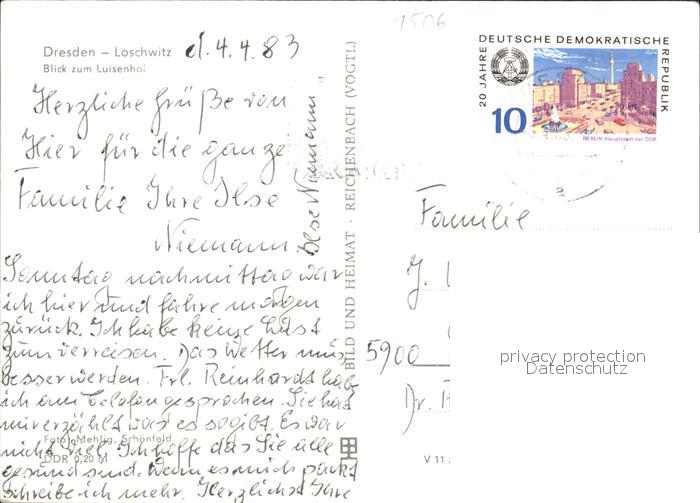 1506
Dresden – Loschwitz d. 4.4.83
Blick zum Luisenhof
Herzliche Grüße von
Hier für die ganze
Familie Ihre Ilse
Niemann
Ilse Niemann
Sonntag nachmittag war
ich hier und fahre morgen
zurück. Ich habe keine Lust
zum verreisen. Das Wetter muß
besser werden. Frl. Reinhardt hab
ich am Telefon gesprochen. Sie hat
mir erzählt was es so gibt. Es war
nicht viel. Ich hoffe das Sie alle
gesund sind. Wenn es mich packt
schreibe ich mehr. Herzlichst Ihre
Foto: Mehlig, Schönfeld
DDR 0,20 M
BILD UND HEIMAT · REICHENBACH (VOGTL)
20 JAHRE DEUTSCHE DEMOKRATISCHE REPUBLIK
10
BERLIN, Hauptstadt der DDR
a
Familie
J.
5900
Dr.
V 11
privacy protection
Datenschutz